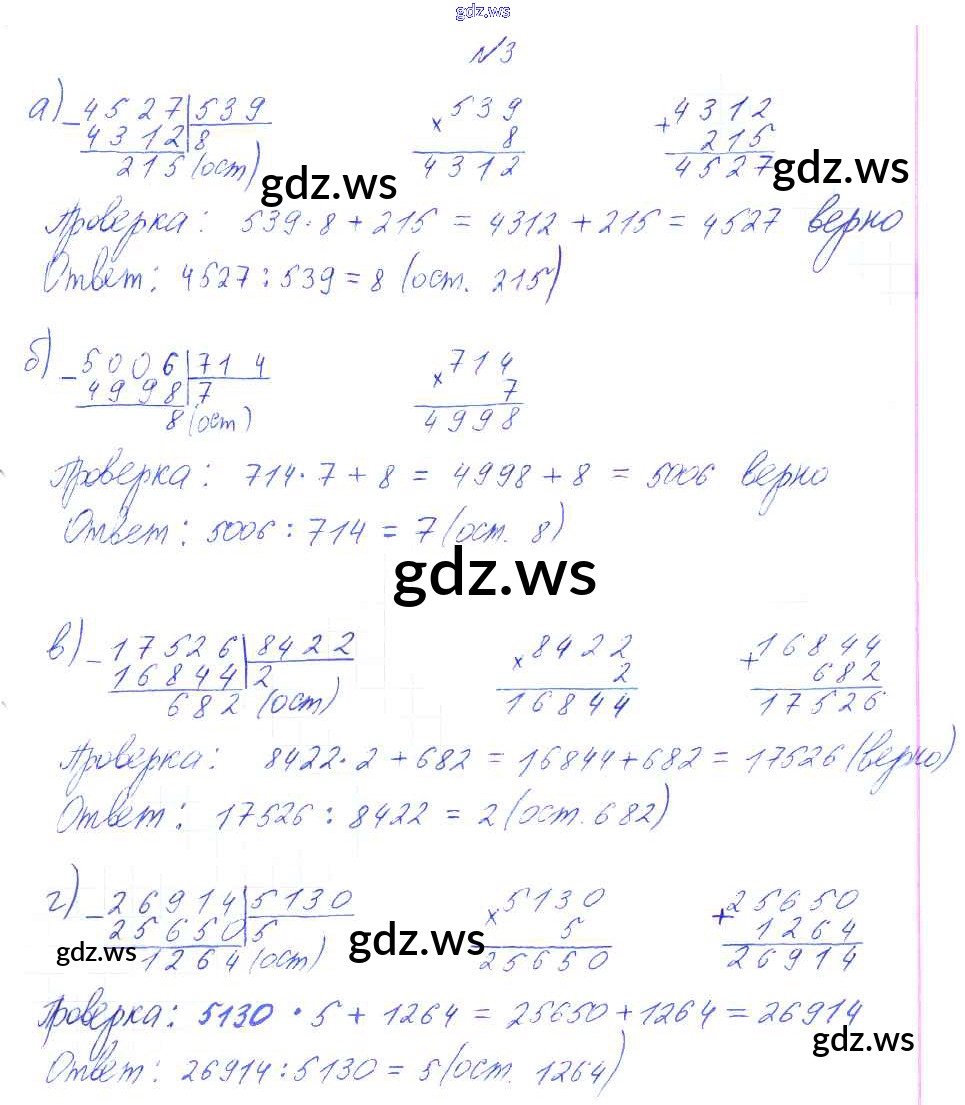 gdz.ws
№3
а) - 4527 | 539 × 539 + 4312
4312 | 8 8 215
215 (ост) 4312 4527
gdz.ws gdz.ws
Проверка: 539·8+215 = 4312+215 = 4527 верно
Ответ: 4527:539=8 (ост. 215)
б) - 5006 | 714 × 714
4998 | 7 7
8 (ост) 4998
Проверка: 714·7+8 = 4998+8 = 5006 верно
Ответ: 5006:714=7 (ост. 8)
gdz.ws
в) - 17526 | 8422 × 8422 + 16844
16844 | 2 2 682
682 (ост) 16844 17526
Проверка: 8422·2+682=16844+682=17526 (верно)
Ответ: 17526:8422=2 (ост. 682)
г) - 26914 | 5130 × 5130 + 25650
25650 | 5 5 1264
1264 (ост) 25650 26914
gdz.ws gdz.ws
Проверка: 5130·5+1264=25650+1264=26914
gdz.ws
Ответ: 26914:5130=5 (ост. 1264)